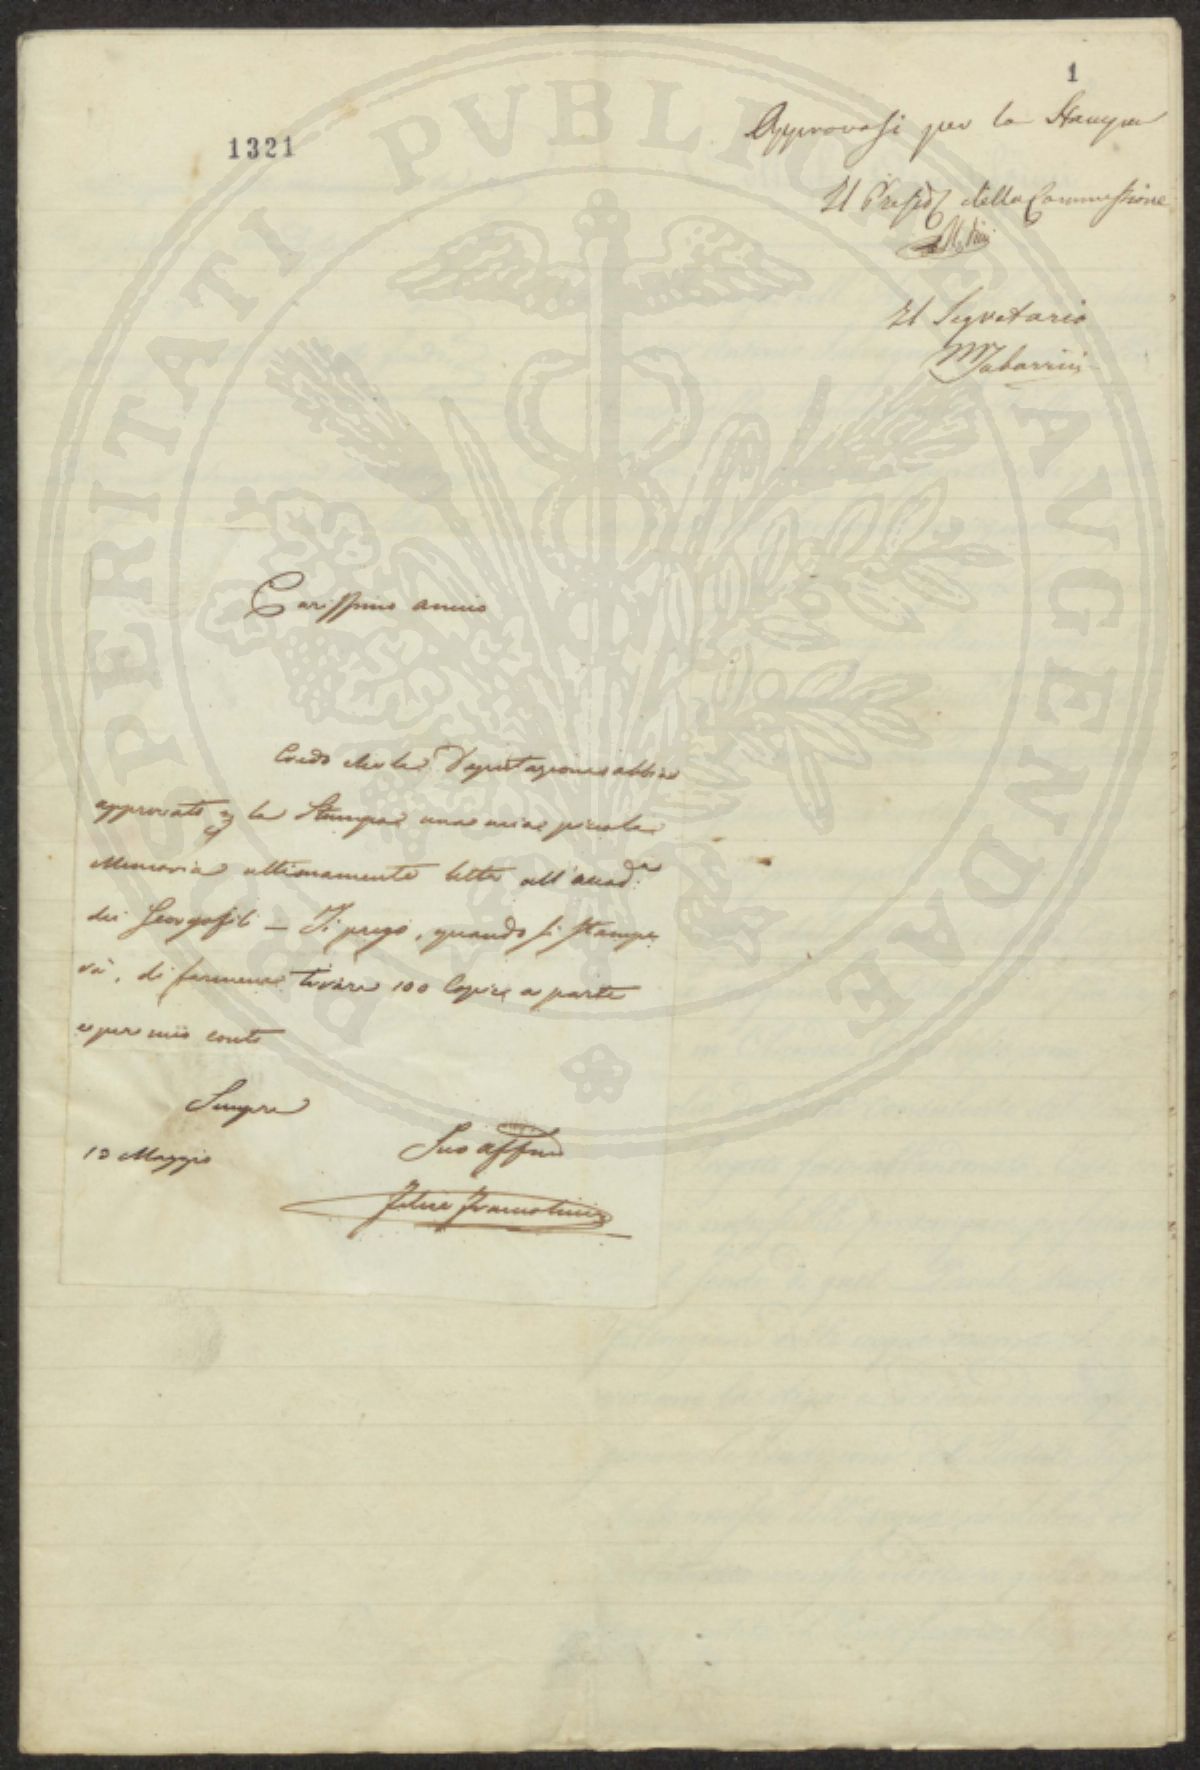 1
1321
Approvasi per la Stampa
Il Presid della Commessione
Il Segretario
M Tabarrini
PROSPERITATI PVBLICAE AVGENDAE
Carissimo amico
Credo che la Deputazione abbia
approvato per la Stampa una mia piccola
Memoria ultimamente letta all'Accad.a
dei Georgofili — Ti prego, quando si stampe
rà, di farmene tirare 100 Copie a parte
e per mio conto
Sempre
13 Maggio
Suo affmo
Felice Francolini